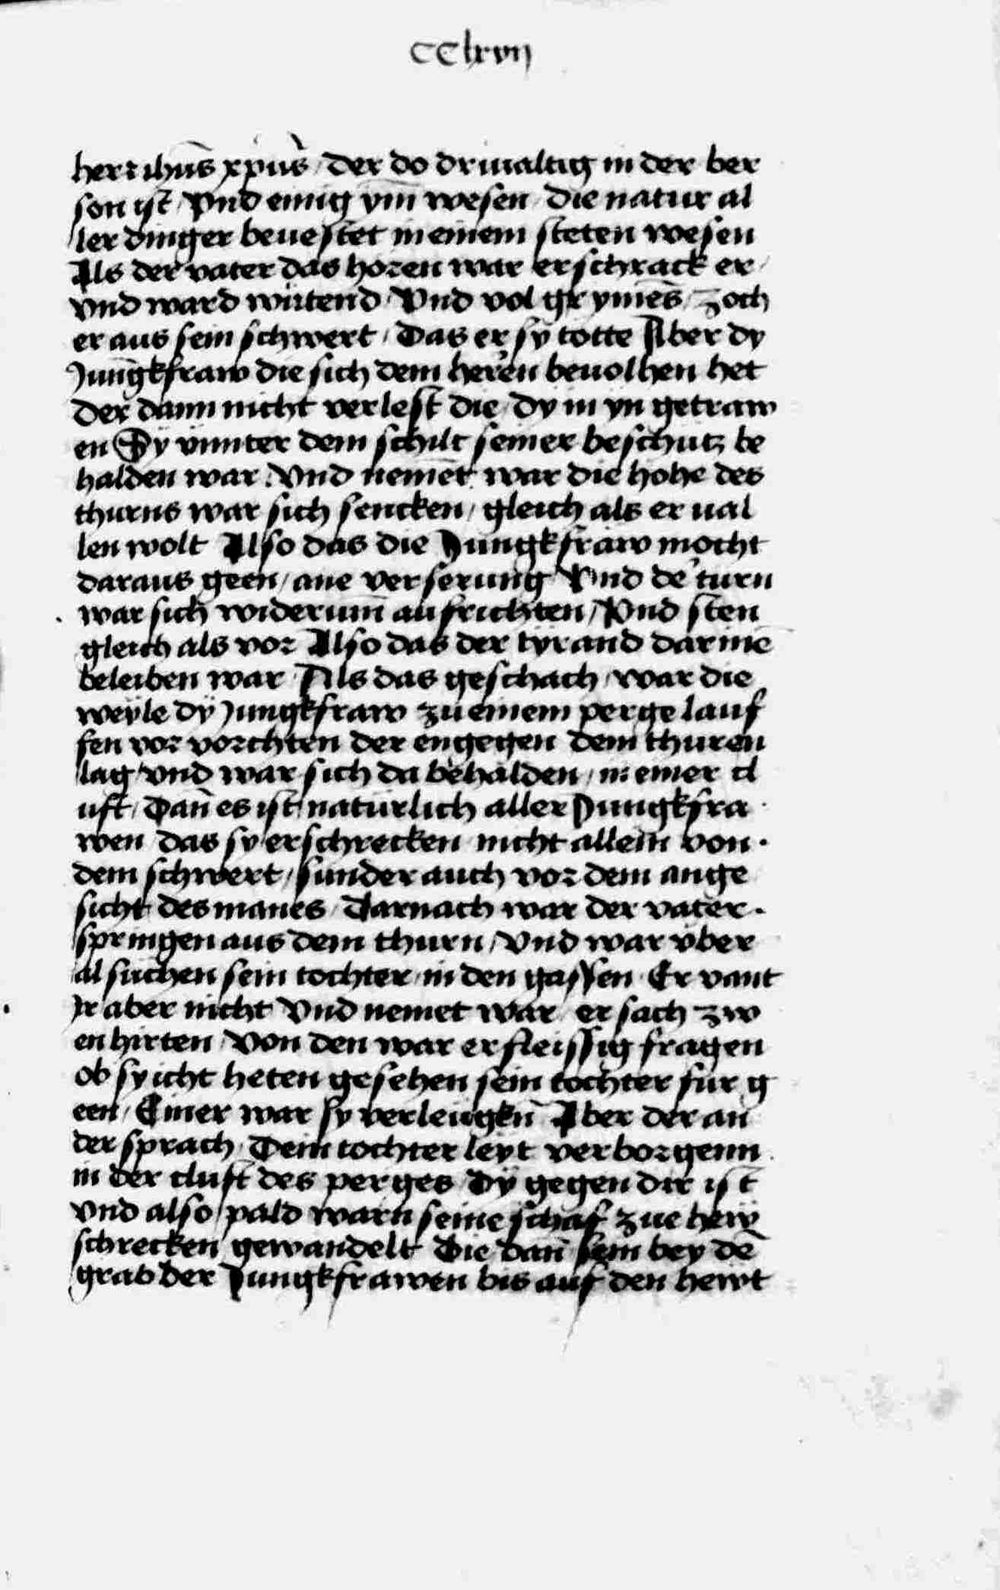 cclxvij
herr ihūs xp̄us / der do driualtig in der ber
son ist / Vnd einig ym̄ wesen / die natur al
ler dinger beuestet in einem steten wesen
Als der vater das horen war erschrack er /
vnd ward wu̇tend / Vnd vol grymēs / zoch
er aus sein schwert / Das er sÿ totte Aber dy
Jūngkfraw die sich dem heren beuolhen het
der dann nicht verlest die / dy in yn getraw
en Sÿ vnnter dem schilt seiner beschutz be
halden war : Vnd nemēt war die hohe des
thurns war sich sencken / gleich als er ual
len wolt Also das die Jungkfraw mocht
daraus geen / ane verserung Vnd de' turn
war sich widerum̄ aufrichten / Vnd sten
gleich als vor Also das der tyrand darinē
beleiben war / Als das geschach / war die
weyle dÿ Jungkfraw zu einem perge lauf
fen vor vorchten der engegen dem thuren
lag vnd war sich da behalden / in einer cl
uft / Dan̄ es ist naturlich aller Jungkfra
wen das sy erschrecken nicht allein von
dem schwert / sunder auch vor dem ange
sicht des manes / Darnach war der vater
springen aus dem thurn / vnd war vber
al suchen sein tochter in den gassen Er vant
Ir aber nicht Vnd nemet war / er sach zw
en hirten / Von den war er fleissig fragen
ob sy icht heten gesehen sein tochter fur g
een / Einer war sy verleugkn̄ Aber der an
der sprach / Dein tochter leyt verborgenn
in der cluft des perges / Dÿ gegen dir ist
vnd also pald warn seine schaf zue hew
schrecken gewandelt Die dan̄ sein bey dē
grab der Jungkfrawen bis auf den hewt